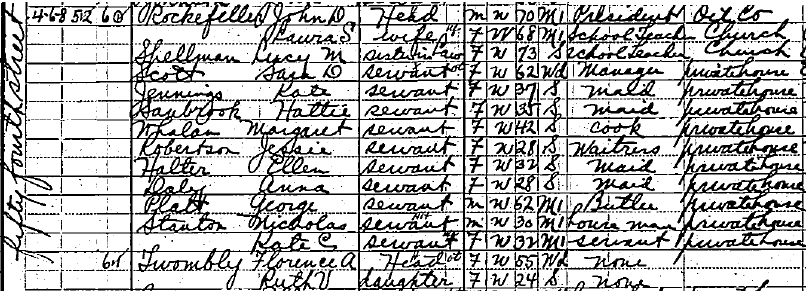 fifty fourth street
4-6-8 52 60 Rockefeller John D. Head m W 70 M1 President Oil Co
Laura S wife F W 68 M1 School Teacher Church
Spellman Lucy M sister in law F W 73 S School Teacher Church
Scott Sara D servant F W 62 Wd Manager privatehouse
Jennings Kate servant F W 37 S maid privatehouse
Hattie servant F W 35 S maid privatehouse
Whalan Margaret servant F W 42 S cook privatehouse
Robertson Jessie servant F W 28 S Waitress privatehouse
Halter Ellen servant F W 32 S Maid privatehouse
Daly Anna servant F W 28 S maid privatehouse
Platt George servant m W 62 M1 Butler privatehouse
Stanton Nicholas servant m W 30 M1 house man privatehouse
Kate C servant F W 32 M1 servant privatehouse
Twombly Florence A Head F W 55 Wd none
Ruth V daughter F W 24 S none